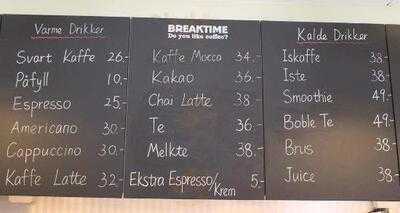 Varme Drikker
Svart Kaffe 26.-
Påfyll 10.-
Espresso 25.-
Americano 30.-
Cappuccino 30.-
Kaffe Latte 32.-
BREAKTIME
Do you like coffee?
Kaffe Mocca 34.-
Kakao 36.-
Chai Latte 38.-
Te 36.-
Melkte 38.-
Ekstra Espresso/Krem 5.-
Kalde Drikker
Iskaffe 38.-
Iste 38.-
Smoothie 49.-
Boble Te 49.-
Brus 38.-
Juice 38.-